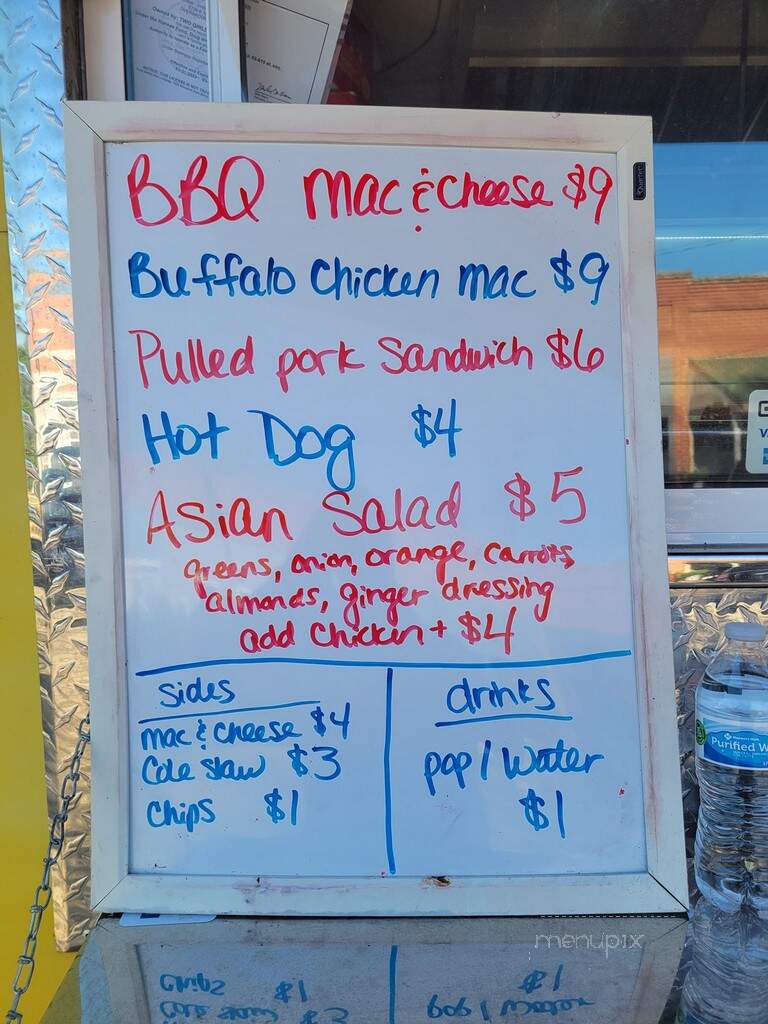 BBQ Mac & Cheese $9
Buffalo Chicken Mac $9
Pulled pork Sandwich $6
Hot Dog $4
Asian Salad $5
greens, onion, orange, carrots,
almonds, ginger dressing
add chicken + $4
sides
mac & cheese $4
Cole Slaw $3
Chips $1
drinks
pop / Water
$1
Purified W
menupix